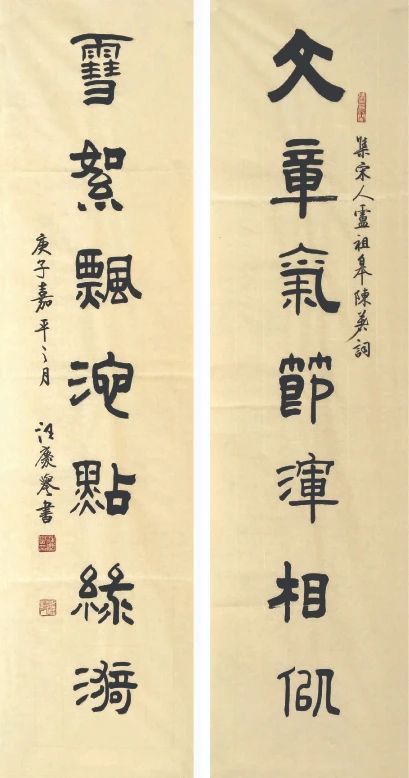 文章氣節渾相似
集宋人盧祖皋陳詞
雪絮飄池點綠漪
庚子嘉平之月
汪慶書